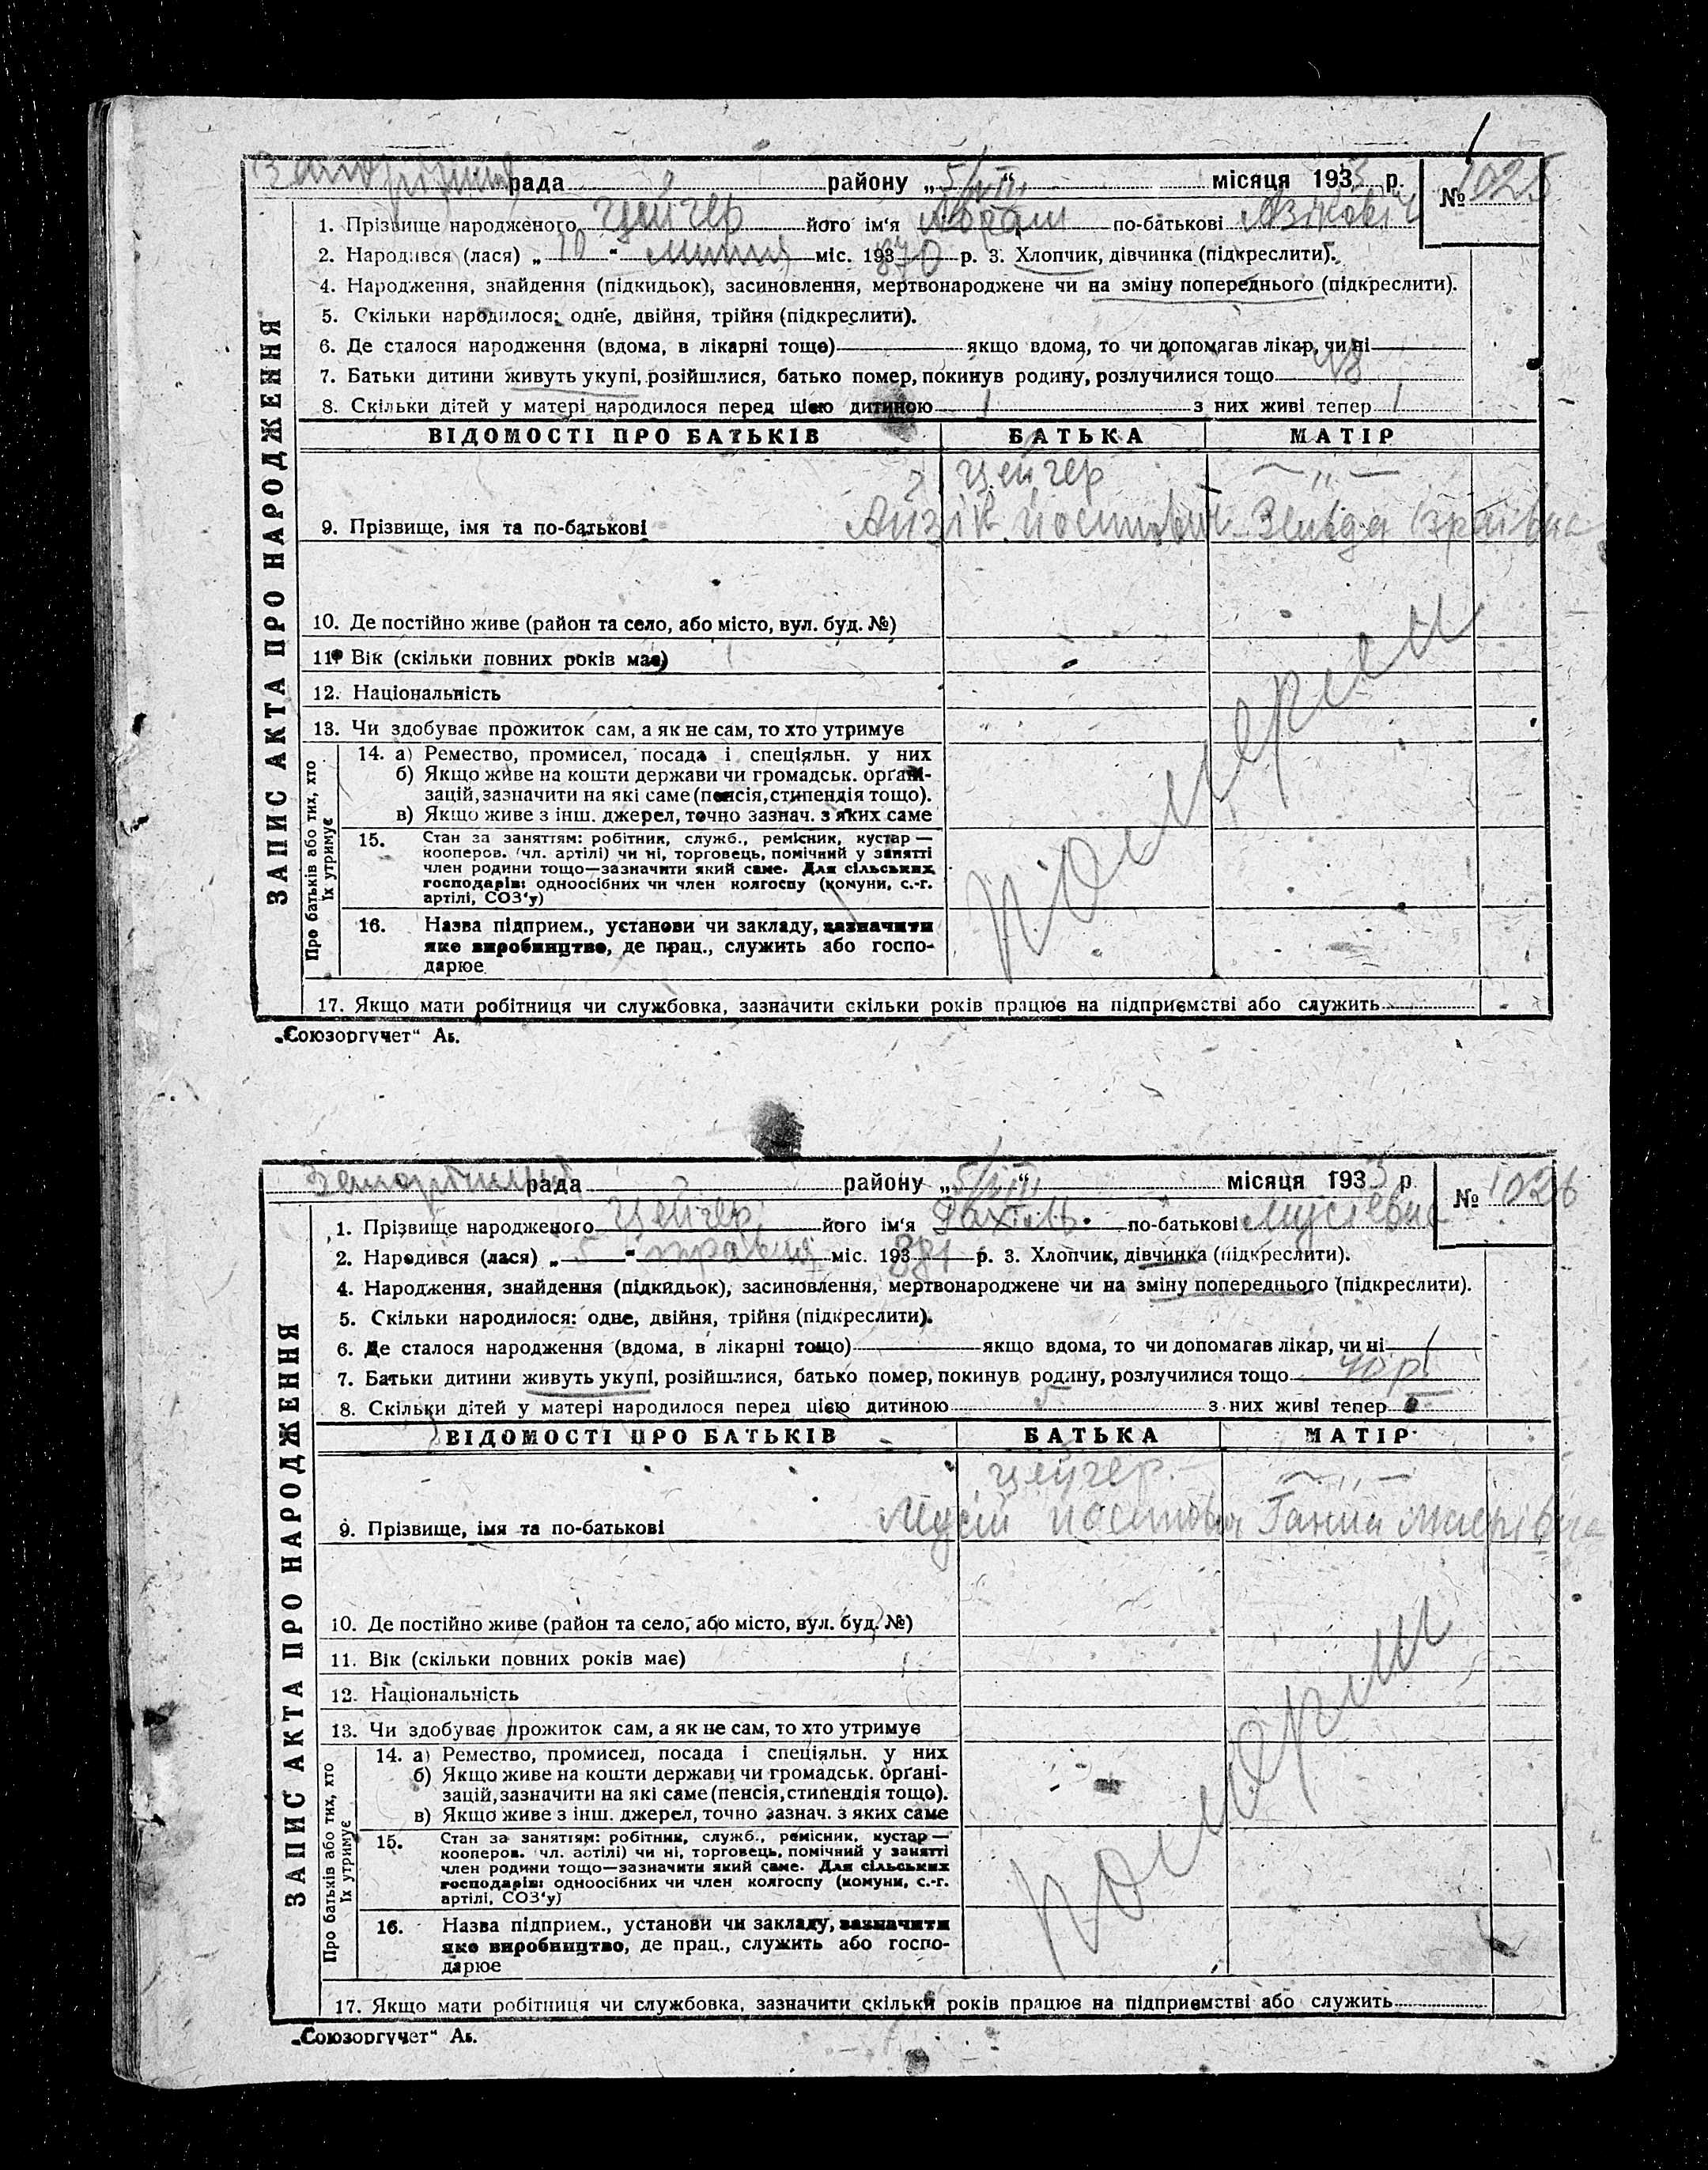 рада 9 району „5/VIII“ місяця 1933 р. № 1025
1. Прізвище народженого Цейгер його ім‘я Абрам по-батькові Азікович
2. Народився (лася) „10“ липня міс. 193 870 р. 3. Хлопчик, дівчинка (підкреслити).
4. Народження, знайдення (підкидьок), засиновлення, мертвонароджене чи на зміну попереднього (підкреслити).
5. Скільки народилося: одне, двійня, трійня (підкреслити).
6. Де сталося народження (вдома, в лікарні тощо) якщо вдома, то чи допомагав лікар, чи ні
7. Батьки дитини живуть укупі, розійшлися, батько помер, покинув родину, розлучилися тощо
8. Скільки дітей у матері народилося перед цією дитиною 1 з них живі тепер 1
ЗАПИС АКТА ПРО НАРОДЖЕННЯ
ВІДОМОСТІ ПРО БАТЬКІВ БАТЬКА МАТІР
Цейгер — „ —
9. Прізвище, імя та по-батькові Айзік Йосипович Зельда Ізраїлівна
10. Де постійно живе (район та село, або місто, вул. буд. №)
11. Вік (скільки повних років має)
12. Національність
13. Чи здобуває прожиток сам, а як не сам, то хто утримує
Про батьків або тих, хто їх утримує
14. а) Ремество, промисел, посада і спеціяльн. у них
б) Якщо живе на кошти держави чи громадськ. орґані-
зацій, зазначити на які саме (пенсія, стипендія тощо).
в) Якщо живе з інш. джерел, точно зазнач. з яких саме
15. Стан за заняттям: робітник, служб., ремісник, кустар —
кооперов. (чл. артілі) чи ні, торговець, помічний у занятті
член родини тощо—зазначити який саме. Для сільських
господарів: одноосібних чи член колгоспу (комуни, с.-г.
артілі, СОЗ‘у)
16. Назва підприєм., установи чи закладу, зазначити
яке виробництво, де прац., служить або госпо-
дарює
померли
17. Якщо мати робітниця чи службовка, зазначити скільки років працює на підприємстві або служить
„Союзоргучет“ Аь.
рада району „5/VIII“ місяця 1933 р № 1026
1. Прізвище народженого Цейгер його ім‘я Рахіль по-батькові Мусіевна
2. Народився (лася) „5“ травня міс. 193 881 р. 3. Хлопчик, дівчинка (підкреслити).
4. Народження, знайдення (підкидьок), засиновлення, мертвонароджене чи на зміну попереднього (підкреслити).
5. Скільки народилося: одне, двійня, трійня (підкреслити).
6. Де сталося народження (вдома, в лікарні тощо) якщо вдома, то чи допомагав лікар, чи ні
7. Батьки дитини живуть укупі, розійшлися, батько помер, покинув родину, розлучилися тощо 40 р
8. Скільки дітей у матері народилося перед цією дитиною 5 з них живі тепер
ЗАПИС АКТА ПРО НАРОДЖЕННЯ
ВІДОМОСТІ ПРО БАТЬКІВ БАТЬКА МАТІР
Цейгер — „ —
9. Прізвище, імя та по-батькові Мусій Йосипович Ганна Меєрівна
10. Де постійно живе (район та село, або місто, вул. буд. №)
11. Вік (скільки повних років має)
12. Національність
13. Чи здобуває прожиток сам, а як не сам, то хто утримує
Про батьків або тих, хто їх утримує
14. а) Ремество, промисел, посада і спеціяльн. у них
б) Якщо живе на кошти держави чи громадськ. орґані-
зацій, зазначити на які саме (пенсія, стипендія тощо).
в) Якщо живе з інш. джерел, точно зазнач. з яких саме
15. Стан за заняттям: робітник, служб., ремісник, кустар —
кооперов. чл. артілі) чи ні, торговець, помічний у занятті
член родини тощо—зазначити який саме. Для сільських
господарів: одноосібних чи член колгоспу (комуни, с.-г.
артілі, СОЗ‘у)
16. Назва підприєм., установи чи закладу, зазначити
яке виробництво, де прац., служить або госпо-
дарює
померли
17. Якщо мати робітниця чи службовка, зазначити скільки років працює на підприємстві або служить
„Союзоргучет“ Аь.